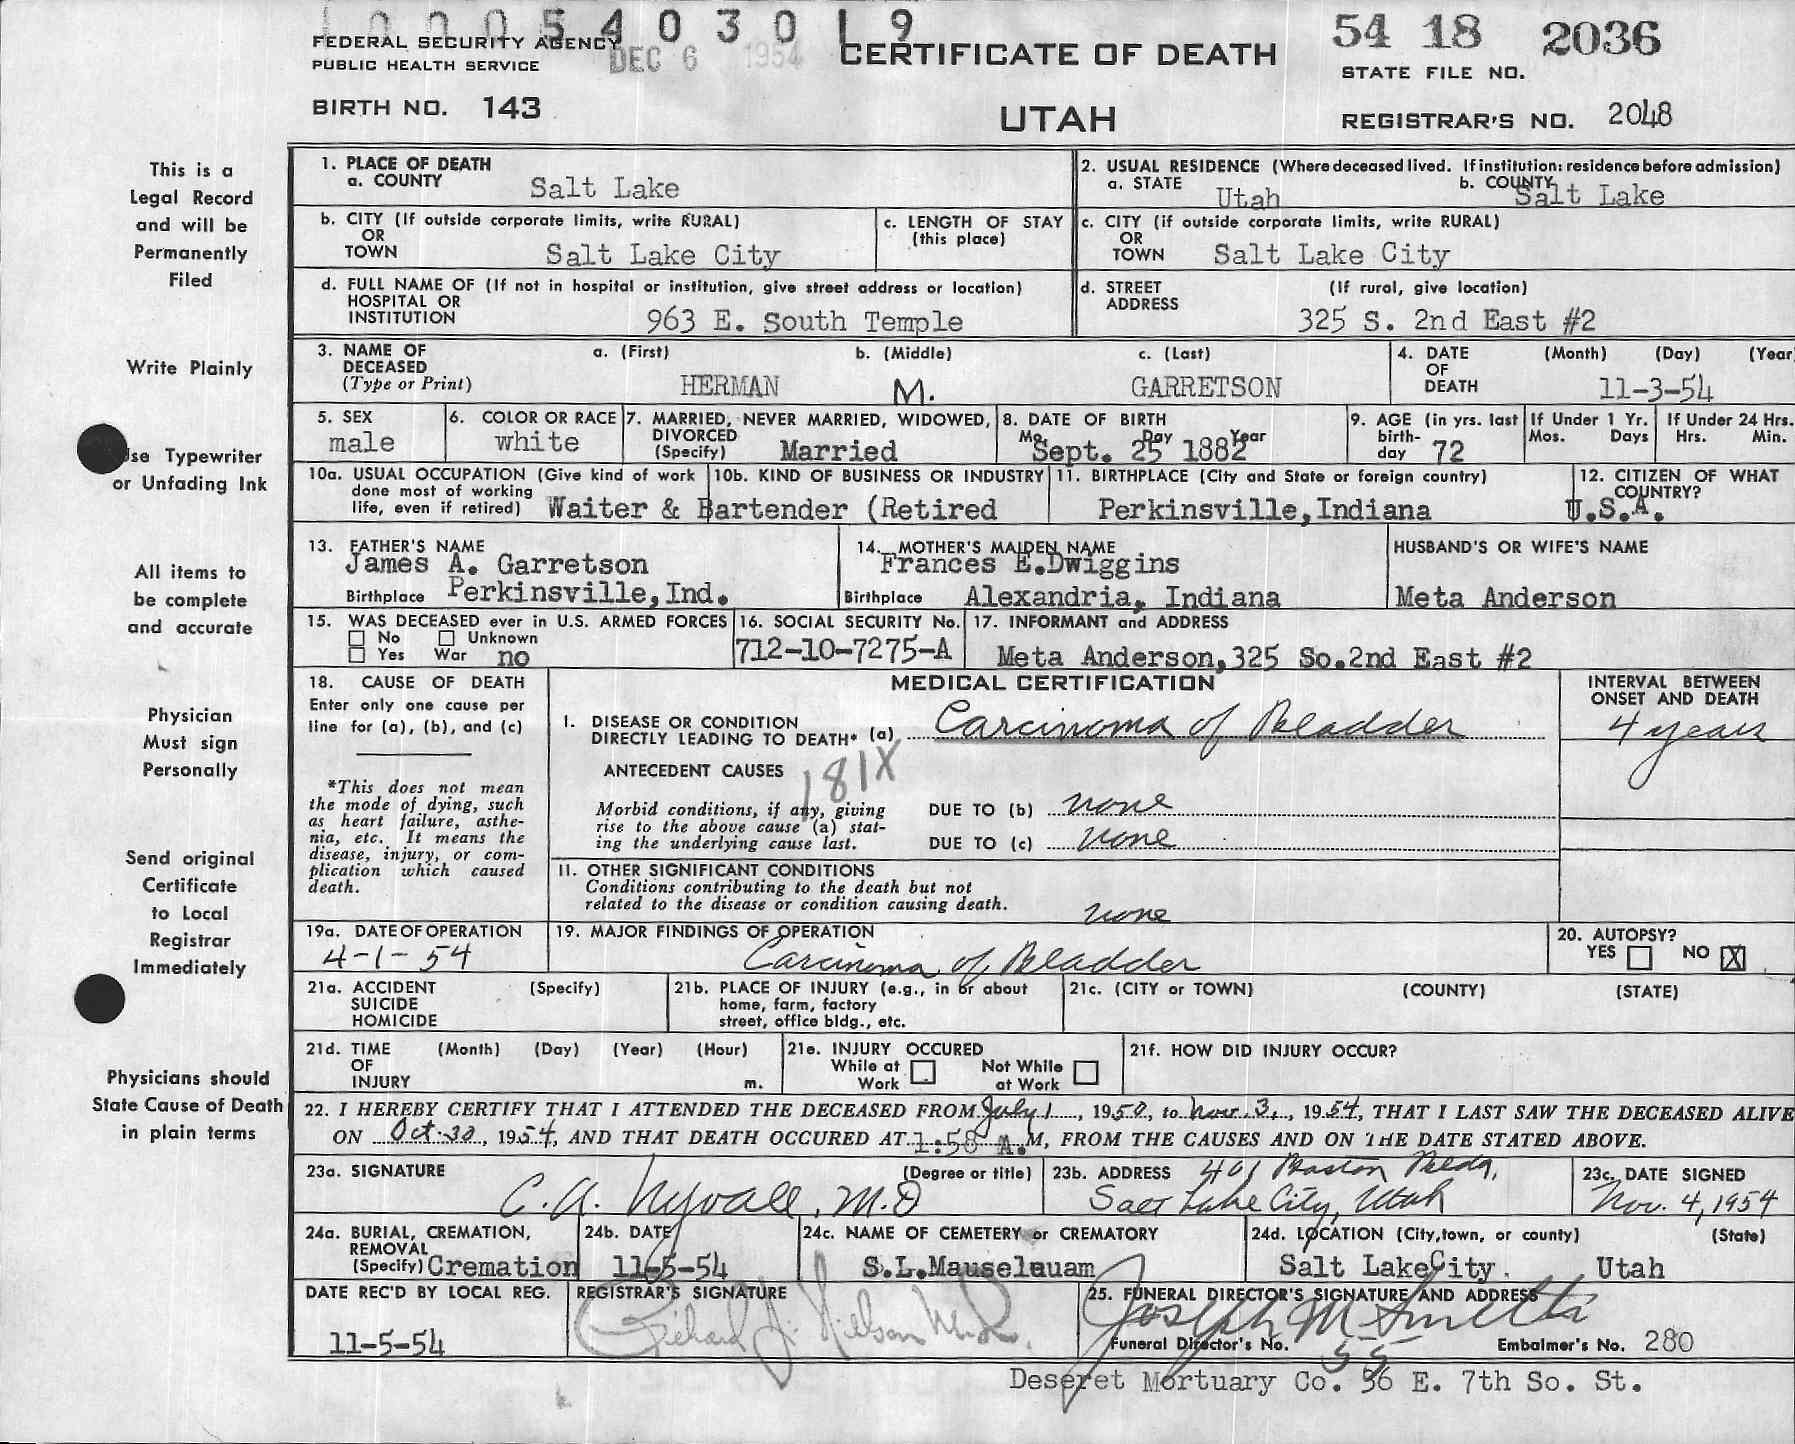 1 0 0 0 5 4 0 3 0 1 9
54 18 2036
FEDERAL SECURITY AGENCY
DEC 6 1954
CERTIFICATE OF DEATH
PUBLIC HEALTH SERVICE
STATE FILE NO.
BIRTH NO. 143
UTAH
REGISTRAR'S NO. 2048
This is a
Legal Record
and will be
Permanently
Filed
Write Plainly
Use Typewriter
or Unfading Ink
All items to
be complete
and accurate
Physician
Must sign
Personally
Send original
Certificate
to Local
Registrar
Immediately
Physicians should
State Cause of Death
in plain terms
1. PLACE OF DEATH
a. COUNTY Salt Lake
2. USUAL RESIDENCE (Where deceased lived. If institution: residence before admission)
a. STATE Utah b. COUNTY Salt Lake
b. CITY (If outside corporate limits, write RURAL)
OR
TOWN Salt Lake City
c. LENGTH OF STAY
(this place)
c. CITY (if outside corporate limits, write RURAL)
OR
TOWN Salt Lake City
d. FULL NAME OF (If not in hospital or institution, give street address or location)
HOSPITAL OR
INSTITUTION 963 E. South Temple
d. STREET (If rural, give location)
ADDRESS
325 S. 2nd East #2
3. NAME OF a. (First) b. (Middle) c. (Last)
DECEASED
(Type or Print) HERMAN M. GARRETSON
4. DATE (Month) (Day) (Year
OF
DEATH 11-3-54
5. SEX
male
6. COLOR OR RACE
white
7. MARRIED, NEVER MARRIED, WIDOWED,
DIVORCED
(Specify) Married
8. DATE OF BIRTH
Mo. Day Year
Sept. 25 1882
9. AGE (in yrs. last
birth-
day 72
If Under 1 Yr.
Mos. Days
If Under 24 Hrs.
Hrs. Min.
10a. USUAL OCCUPATION (Give kind of work
done most of working
life, even if retired) Waiter & Bartender (Retired
10b. KIND OF BUSINESS OR INDUSTRY
11. BIRTHPLACE (City and State or foreign country)
Perkinsville, Indiana
12. CITIZEN OF WHAT
COUNTRY?
U.S.A.
13. FATHER'S NAME
James A. Garretson
Birthplace Perkinsville, Ind.
14. MOTHER'S MAIDEN NAME
Frances E.Dwiggins
Birthplace Alexandria, Indiana
HUSBAND'S OR WIFE'S NAME
Meta Anderson
15. WAS DECEASED ever in U.S. ARMED FORCES
No Unknown
Yes War no
16. SOCIAL SECURITY No.
712-10-7275-A
17. INFORMANT and ADDRESS
Meta Anderson, 325 So.2nd East #2
18. CAUSE OF DEATH
Enter only one cause per
line for (a), (b), and (c)
*This does not mean
the mode of dying, such
as heart failure, asthe-
nia, etc. It means the
disease, injury, or com-
plication which caused
death.
MEDICAL CERTIFICATION
INTERVAL BETWEEN
ONSET AND DEATH
I. DISEASE OR CONDITION
DIRECTLY LEADING TO DEATH* (a) Carcinoma of Bladder
4 years
ANTECEDENT CAUSES
181X
Morbid conditions, if any, giving
rise to the above cause (a) stat-
ing the underlying cause last.
DUE TO (b) none
DUE TO (c) none
II. OTHER SIGNIFICANT CONDITIONS
Conditions contributing to the death but not
related to the disease or condition causing death.
none
19a. DATE OF OPERATION
4-1-54
19. MAJOR FINDINGS OF OPERATION
Carcinoma of Bladder
20. AUTOPSY?
YES NO X
21a. ACCIDENT (Specify)
SUICIDE
HOMICIDE
21b. PLACE OF INJURY (e.g., in or about
home, farm, factory
street, office bldg., etc.
21c. (CITY or TOWN) (COUNTY) (STATE)
21d. TIME (Month) (Day) (Year) (Hour)
OF
INJURY m.
21e. INJURY OCCURED
While at Not While
Work at Work
21f. HOW DID INJURY OCCUR?
22. I HEREBY CERTIFY THAT I ATTENDED THE DECEASED FROM July 1, 1950, to Nov. 3, 1954, THAT I LAST SAW THE DECEASED ALIVE
ON Oct. 30, 1954, AND THAT DEATH OCCURED AT 1:58 A.M, FROM THE CAUSES AND ON THE DATE STATED ABOVE.
23a. SIGNATURE (Degree or title)
C. A. Nyvall, M.D
23b. ADDRESS 401 Boston Bldg,
Salt Lake City, Utah
23c. DATE SIGNED
Nov. 4, 1954
24a. BURIAL, CREMATION,
REMOVAL
(Specify) Cremation
24b. DATE
11-5-54
24c. NAME OF CEMETERY or CREMATORY
S.L.Mauseleuam
24d. LOCATION (City, town, or county) (State)
Salt Lake City. Utah
DATE REC'D BY LOCAL REG.
11-5-54
REGISTRAR'S SIGNATURE
Richard J. Nielson
25. FUNERAL DIRECTOR'S SIGNATURE AND ADDRESS
Joseph M Smith
Funeral Director's No. 55 Embalmer's No. 280
Deseret Mortuary Co. 36 E. 7th So. St.